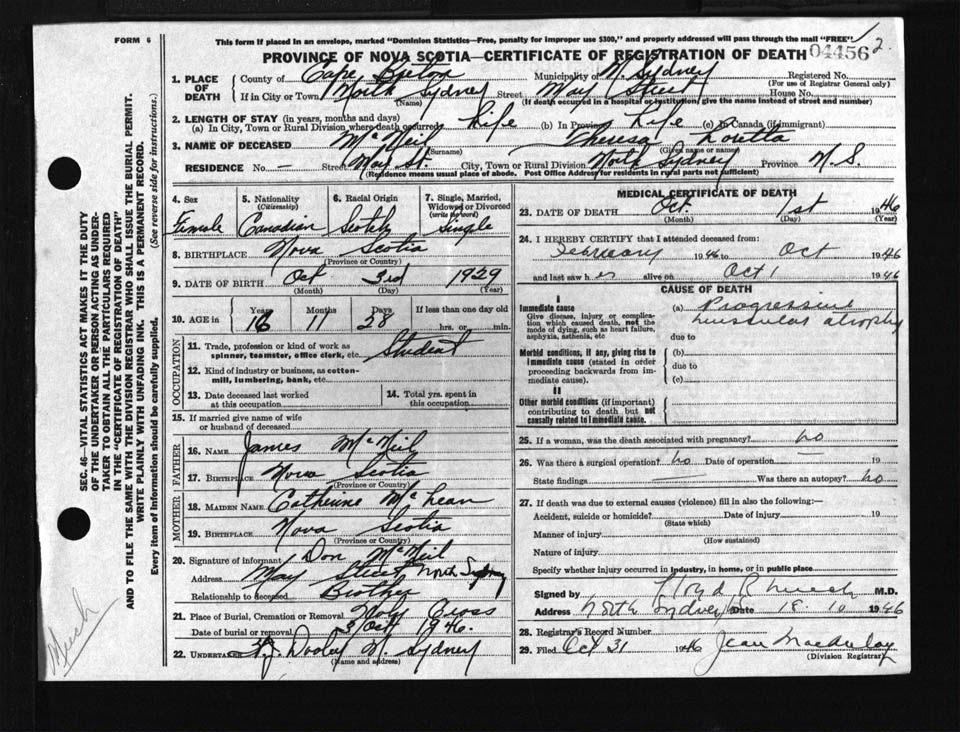 FORM 6
This form if placed in an envelope, marked "Dominion Statistics—Free, penalty for improper use $300," and properly addressed will pass through the mail "FREE"
2.
PROVINCE OF NOVA SCOTIA—CERTIFICATE OF REGISTRATION OF DEATH 04456
1. PLACE OF DEATH County of Cape Breton Municipality of N. Sydney Registered No.
(For use of Registrar General only)
If in City or Town North Sydney Street May Street House No.
(Name) (If death occurred in a hospital or institution, give the name instead of street and number)
2. LENGTH OF STAY (in years, months and days)
(a) In City, Town or Rural Division where death occurred Life (b) In Province Life (c) In Canada (if immigrant)
3. NAME OF DECEASED McNeil Loretta
(Surname) (Given name or names)
RESIDENCE No. — Street May St. City, Town or Rural Division North Sydney Province N.S.
(Residence means usual place of abode. Post Office Address for residents in rural parts not sufficient)
4. Sex Female
5. Nationality (Citizenship) Canadian
6. Racial Origin Scotch
7. Single, Married, Widowed or Divorced (write the word) Single
8. BIRTHPLACE Nova Scotia
(Province or Country)
9. DATE OF BIRTH Oct 3rd 1929
(Month) (Day) (Year)
10. AGE in Years 16 Months 11 Days 28 If less than one day old
hrs. or min.
OCCUPATION
11. Trade, profession or kind of work as spinner, teamster, office clerk, etc. Student
12. Kind of industry or business, as cotton-mill, lumbering, bank, etc.
13. Date deceased last worked at this occupation
14. Total yrs. spent in this occupation
15. If married give name of wife or husband of deceased
FATHER
16. NAME James McNeil
17. BIRTHPLACE Nova Scotia
(Province or Country)
MOTHER
18. MAIDEN NAME Catherine McLean
19. BIRTHPLACE Nova Scotia
(Province or Country)
20. Signature of informant Don McNeil
Address May Street North Sydney
Relationship to deceased Brother
21. Place of Burial, Cremation or Removal Holy Cross
Date of burial or removal 3 Oct 1946.
22. UNDERTAKER Dooley N. Sydney
(Name and address)
MEDICAL CERTIFICATE OF DEATH
23. DATE OF DEATH Oct. 1st 1946
(Month) (Day) (Year)
24. I HEREBY CERTIFY that I attended deceased from:
February 1946 to Oct 1946
and last saw her alive on Oct 1 1946
CAUSE OF DEATH
I
Immediate cause
Give disease, injury or complication which caused death, not the mode of dying, such as heart failure, asphyxia, asthenia, etc
(a) Progressive muscular atrophy
due to
Morbid conditions, if any, giving rise to immediate cause (stated in order proceeding backwards from immediate cause).
(b)
due to
(c)
II
Other morbid conditions (if important) contributing to death but not causally related to immediate cause.
25. If a woman, was the death associated with pregnancy? no
26. Was there a surgical operation? no Date of operation — 19
State findings — Was there an autopsy? no
27. If death was due to external causes (violence) fill in also the following:—
Accident, suicide or homicide? Date of injury 19
(State which)
Manner of injury
(How sustained)
Nature of injury
Specify whether injury occurred in industry, in home, or in public place
Signed by M.D.
Address North Sydney Date 18. 10 1946
28. Registrar's Record Number
29. Filed Oct 31 1946 Jean
(Division Registrar)
SEC. 46—VITAL STATISTICS ACT MAKES IT THE DUTY
OF THE UNDERTAKER OR PERSON ACTING AS UNDER-
TAKER TO OBTAIN ALL THE PARTICULARS REQUIRED
IN THE "CERTIFICATE OF REGISTRATION OF DEATH"
AND TO FILE THE SAME WITH THE DIVISION REGISTRAR WHO SHALL ISSUE THE BURIAL PERMIT.
WRITE PLAINLY WITH UNFADING INK. THIS IS A PERMANENT RECORD.
Every item of information should be carefully supplied. (See reverse side for instructions.)